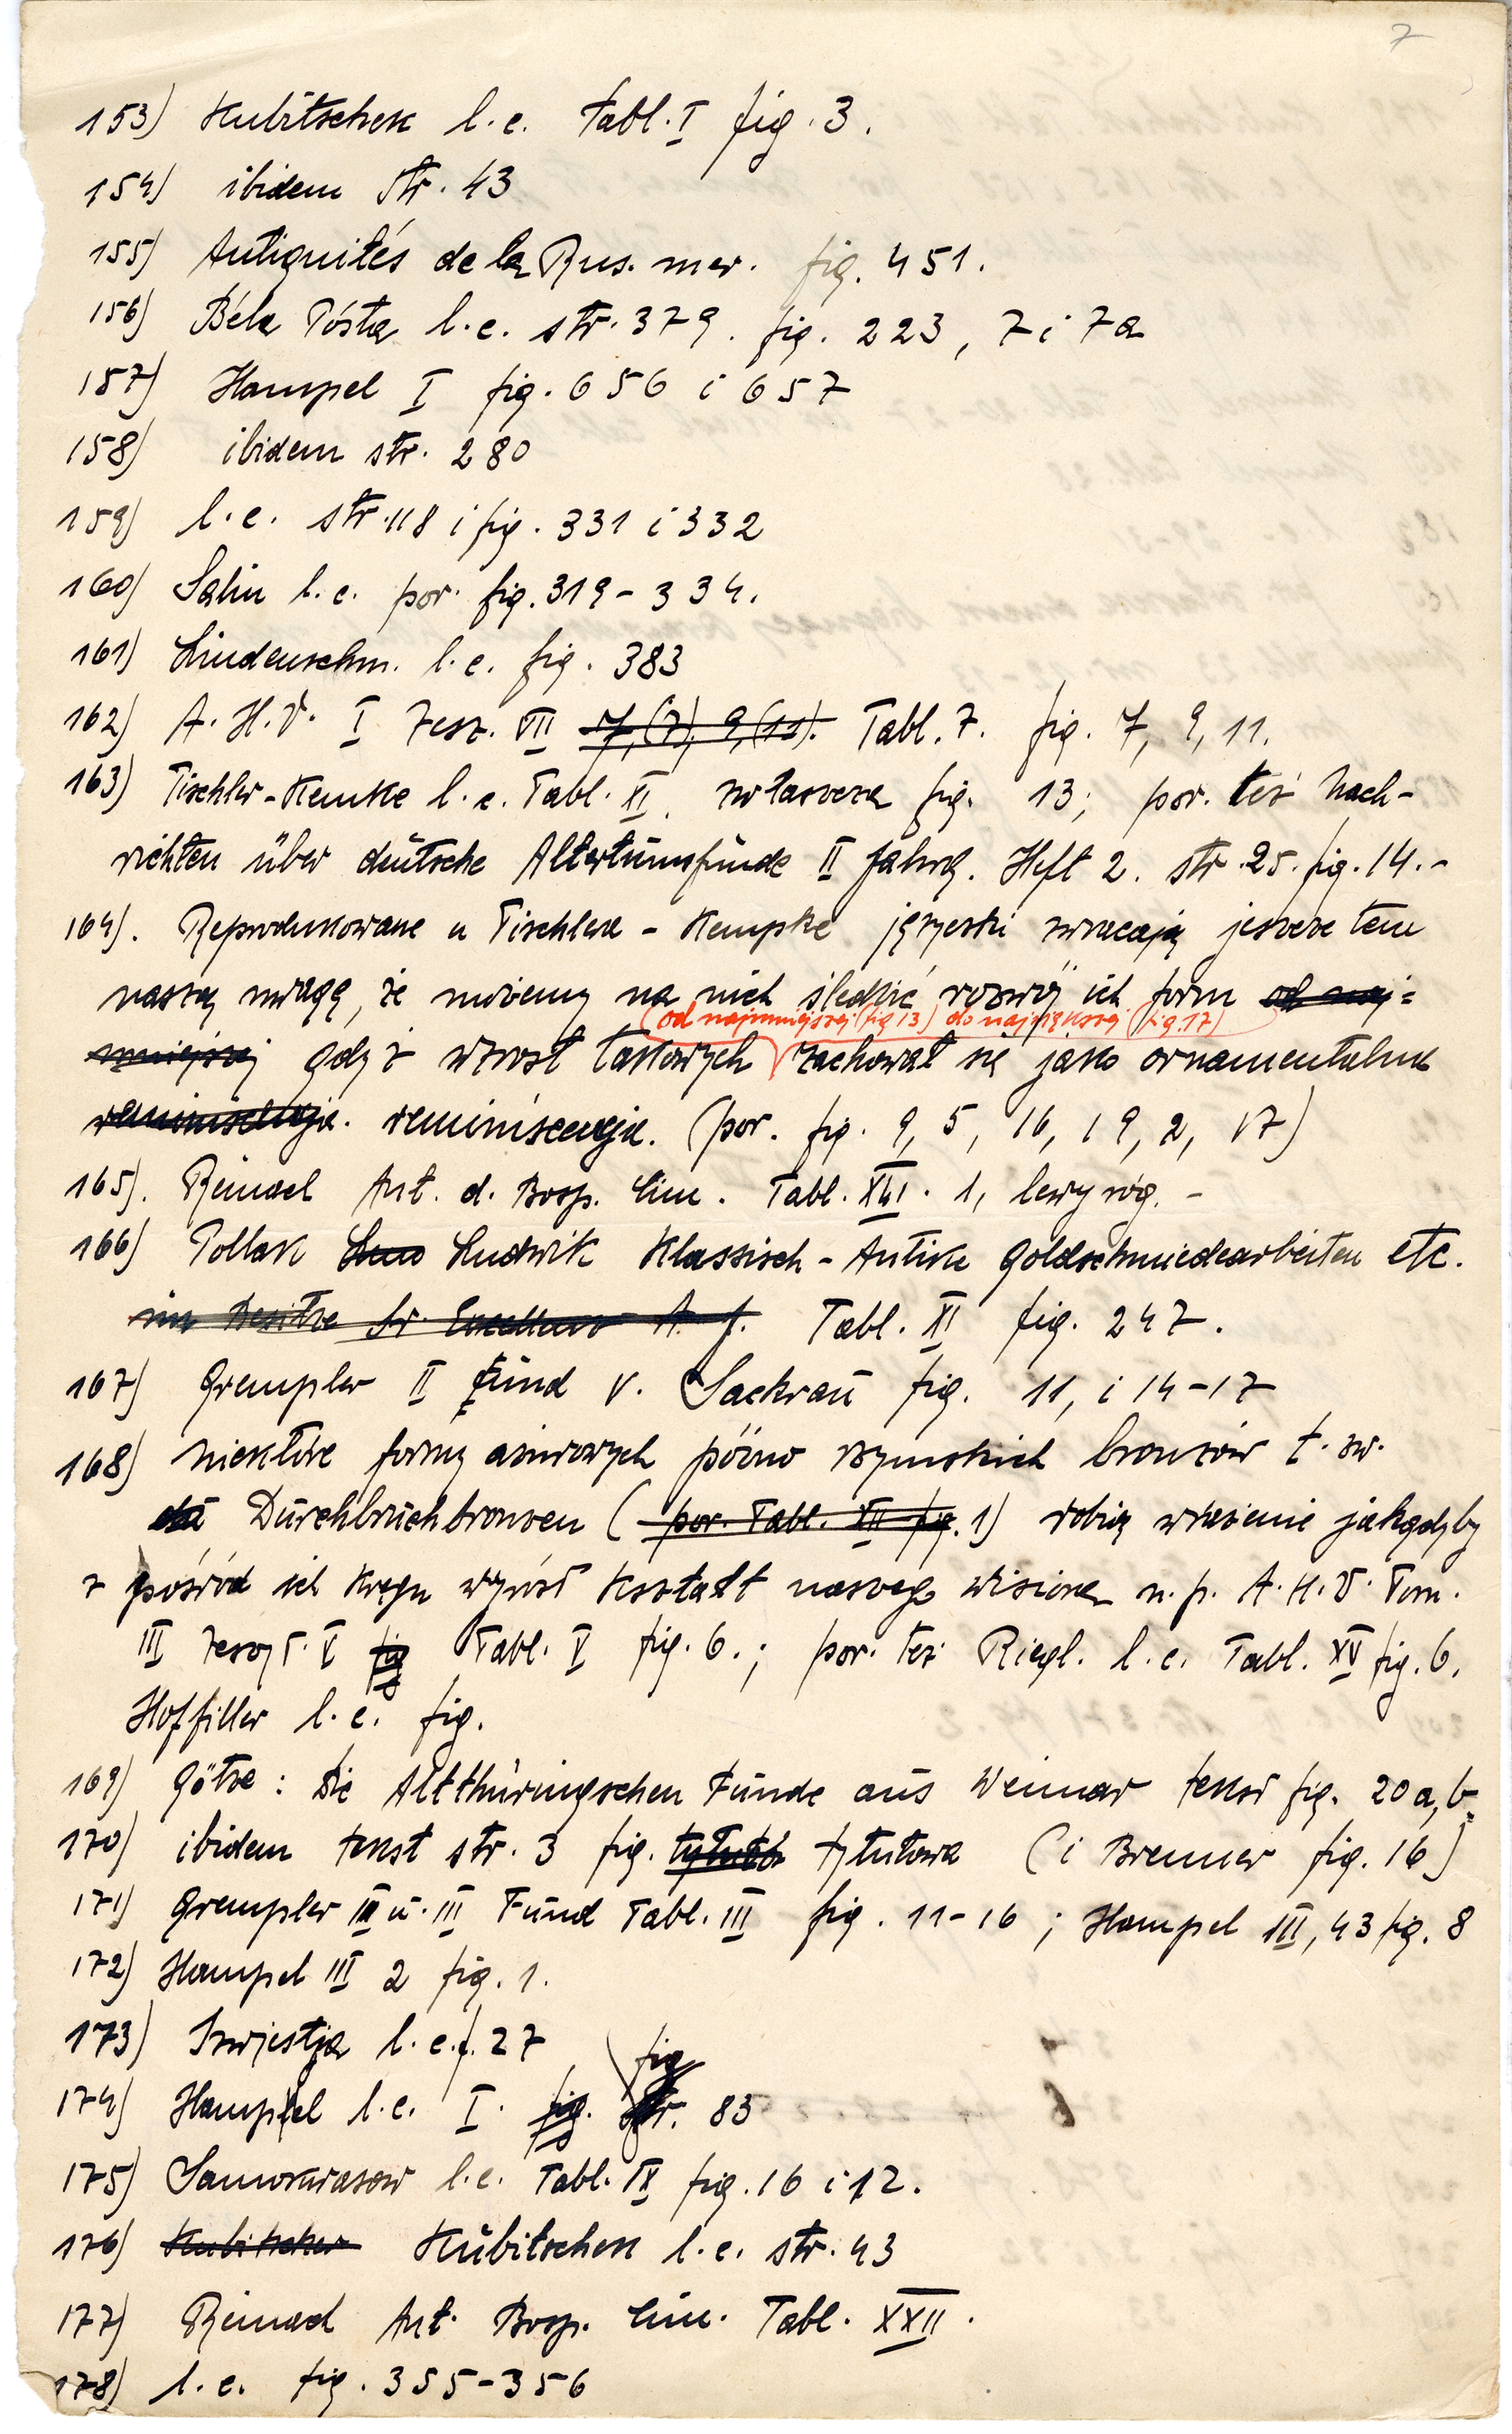 7
153) Kubitschek l.c. Tabl. I fig. 3.
154) ibidem str. 43
155) Antiquités de la Rus. mer. fig. 451.
156) Béla Pósta l.c. str. 379. fig. 223, 7 i 7a
157) Hampel I fig. 656 i 657
158) ibidem str. 280
159) l.c. str. 118 i fig. 331 i 332
160) Salin l.c. por. fig. 319-334.
161) Lindenschm. l.c. fig. 383
162) A.H.V. I Zesz. VII 7, (7), 9, (11). Tabl. 7. fig. 7, 9, 11.
163) Tischler-Kemke l.c. Tabl. XI, zwłaszcza fig. 13; por. też Nach-
richten über deutsche Altertumsfunde II Jahrg. Heft 2. str. 25. fig. 14.-
164). Reprodukowane u Tischlera-Kempke języczki zwracają jeszcze tem
naszą uwagę, że możemy na nich śledzić rozwój ich form od naj=
(od najmniejszej (fig 13) do największej (fig. 17)
mniejszej gdyż wzrost taśmowych zachował się jako ornamentalna
reminiscencja. reminiscencja. (por. fig. 9, 5, 16, 19, 2, 17)
165). Reinach Ant. d. Bosp. Cim. Tabl. XXI. 1, lewy róg. -
166) Pollak Ludwik Klassisch-Antike Goldschmiedearbeiten etc.
im Besitze Sr. Excellenz A. J. Tabl. XI fig. 247.
167) Grempler II Fund v. Sackrau fig. 11, i 14-17
168) Niektóre formy ażurowych późno rzymskich bronzów t. zw.
Durchbruchbronzen (por. Tabl. XII fig. 1) robią wrażenie jakgdyby
z pośród ich kręgu wyrósł kształt naszego wisiora n.p. A.H.V. Tom.
III Zeszyt. V fig Tabl. V fig. 6.; por. też Riegl. l.c. Tabl. XV fig. 6.
Hoffiller l.c. fig.
169) Götze: Die Altthüringschen Funde aus Weimar tekst fig. 20 a, b
170) ibidem tekst str. 3 fig. tytułowa (i Brenner fig. 16)
171) Grempler II u. III Fund Tabl. III fig. 11-16; Hampel III, 43 fig. 8
172) Hampel III 2 fig. 1.
173) Izwjestja l.c. f. 27
174) Hampel l.c. I. fig. fig str. 83
175) Samokwasow l.c. Tabl. IX fig. 16 i 12.
176) Kubitschek Kubitschek l.c. str. 43
177) Reinach Ant. Bosp. Cim. Tabl. XXII.
178) l.c. fig. 355-356